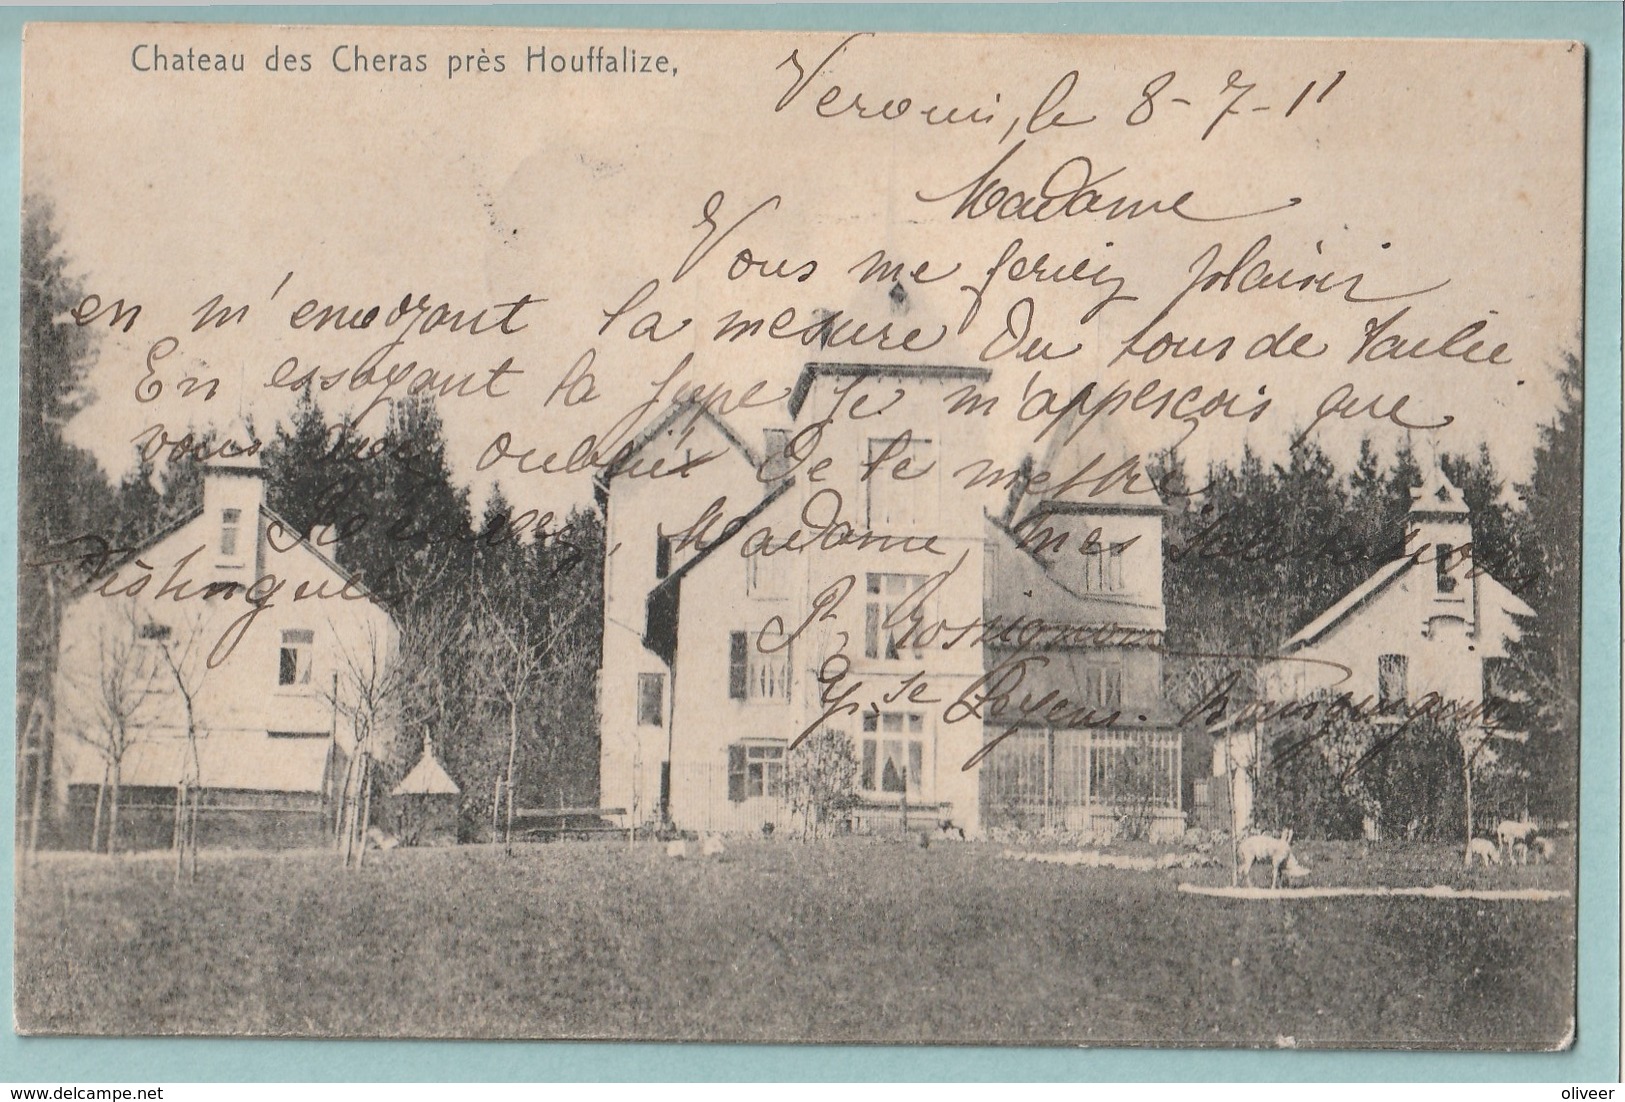 Chateau des Cheras près Houffalize,
le 8-7-11
Madame
Vous me feriez plaisir
en m'envoyant la mesure du tour de taille.
En essayant la jupe je m'apperçois que
vous avez oublié de le mettre
Recevez, Madame, mes salutations
distinguées
delcampe.net
oliveer